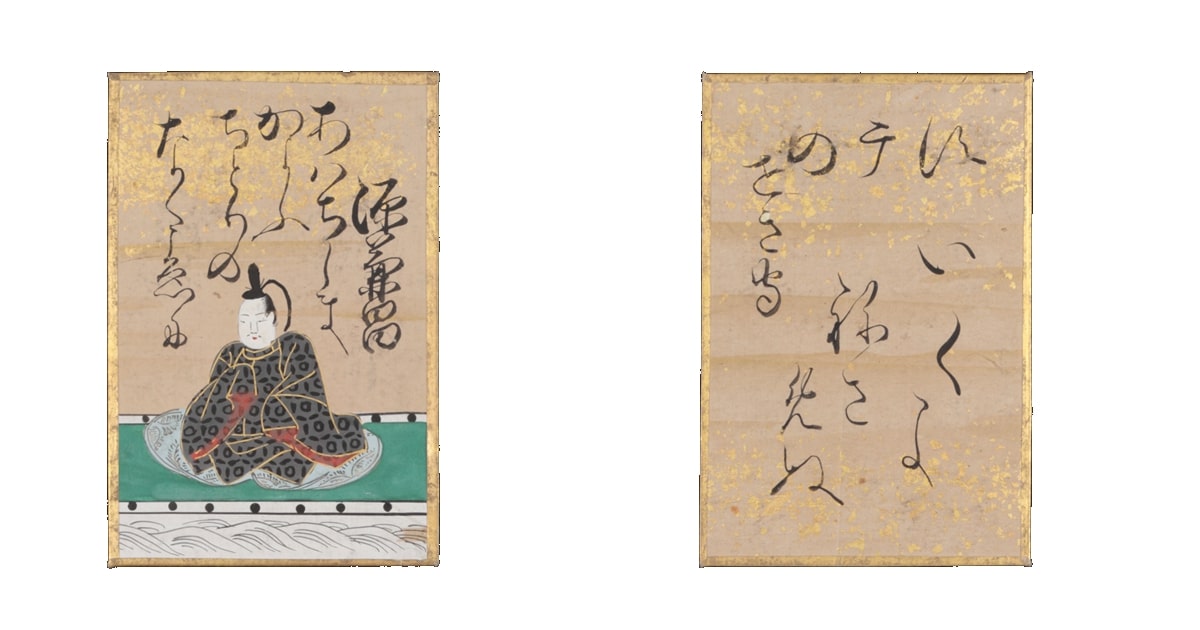 源兼昌
あハちしま
かよふ
ちとりの
なくこゑに
いくよ
ねさ
めぬ
すまの
せき守